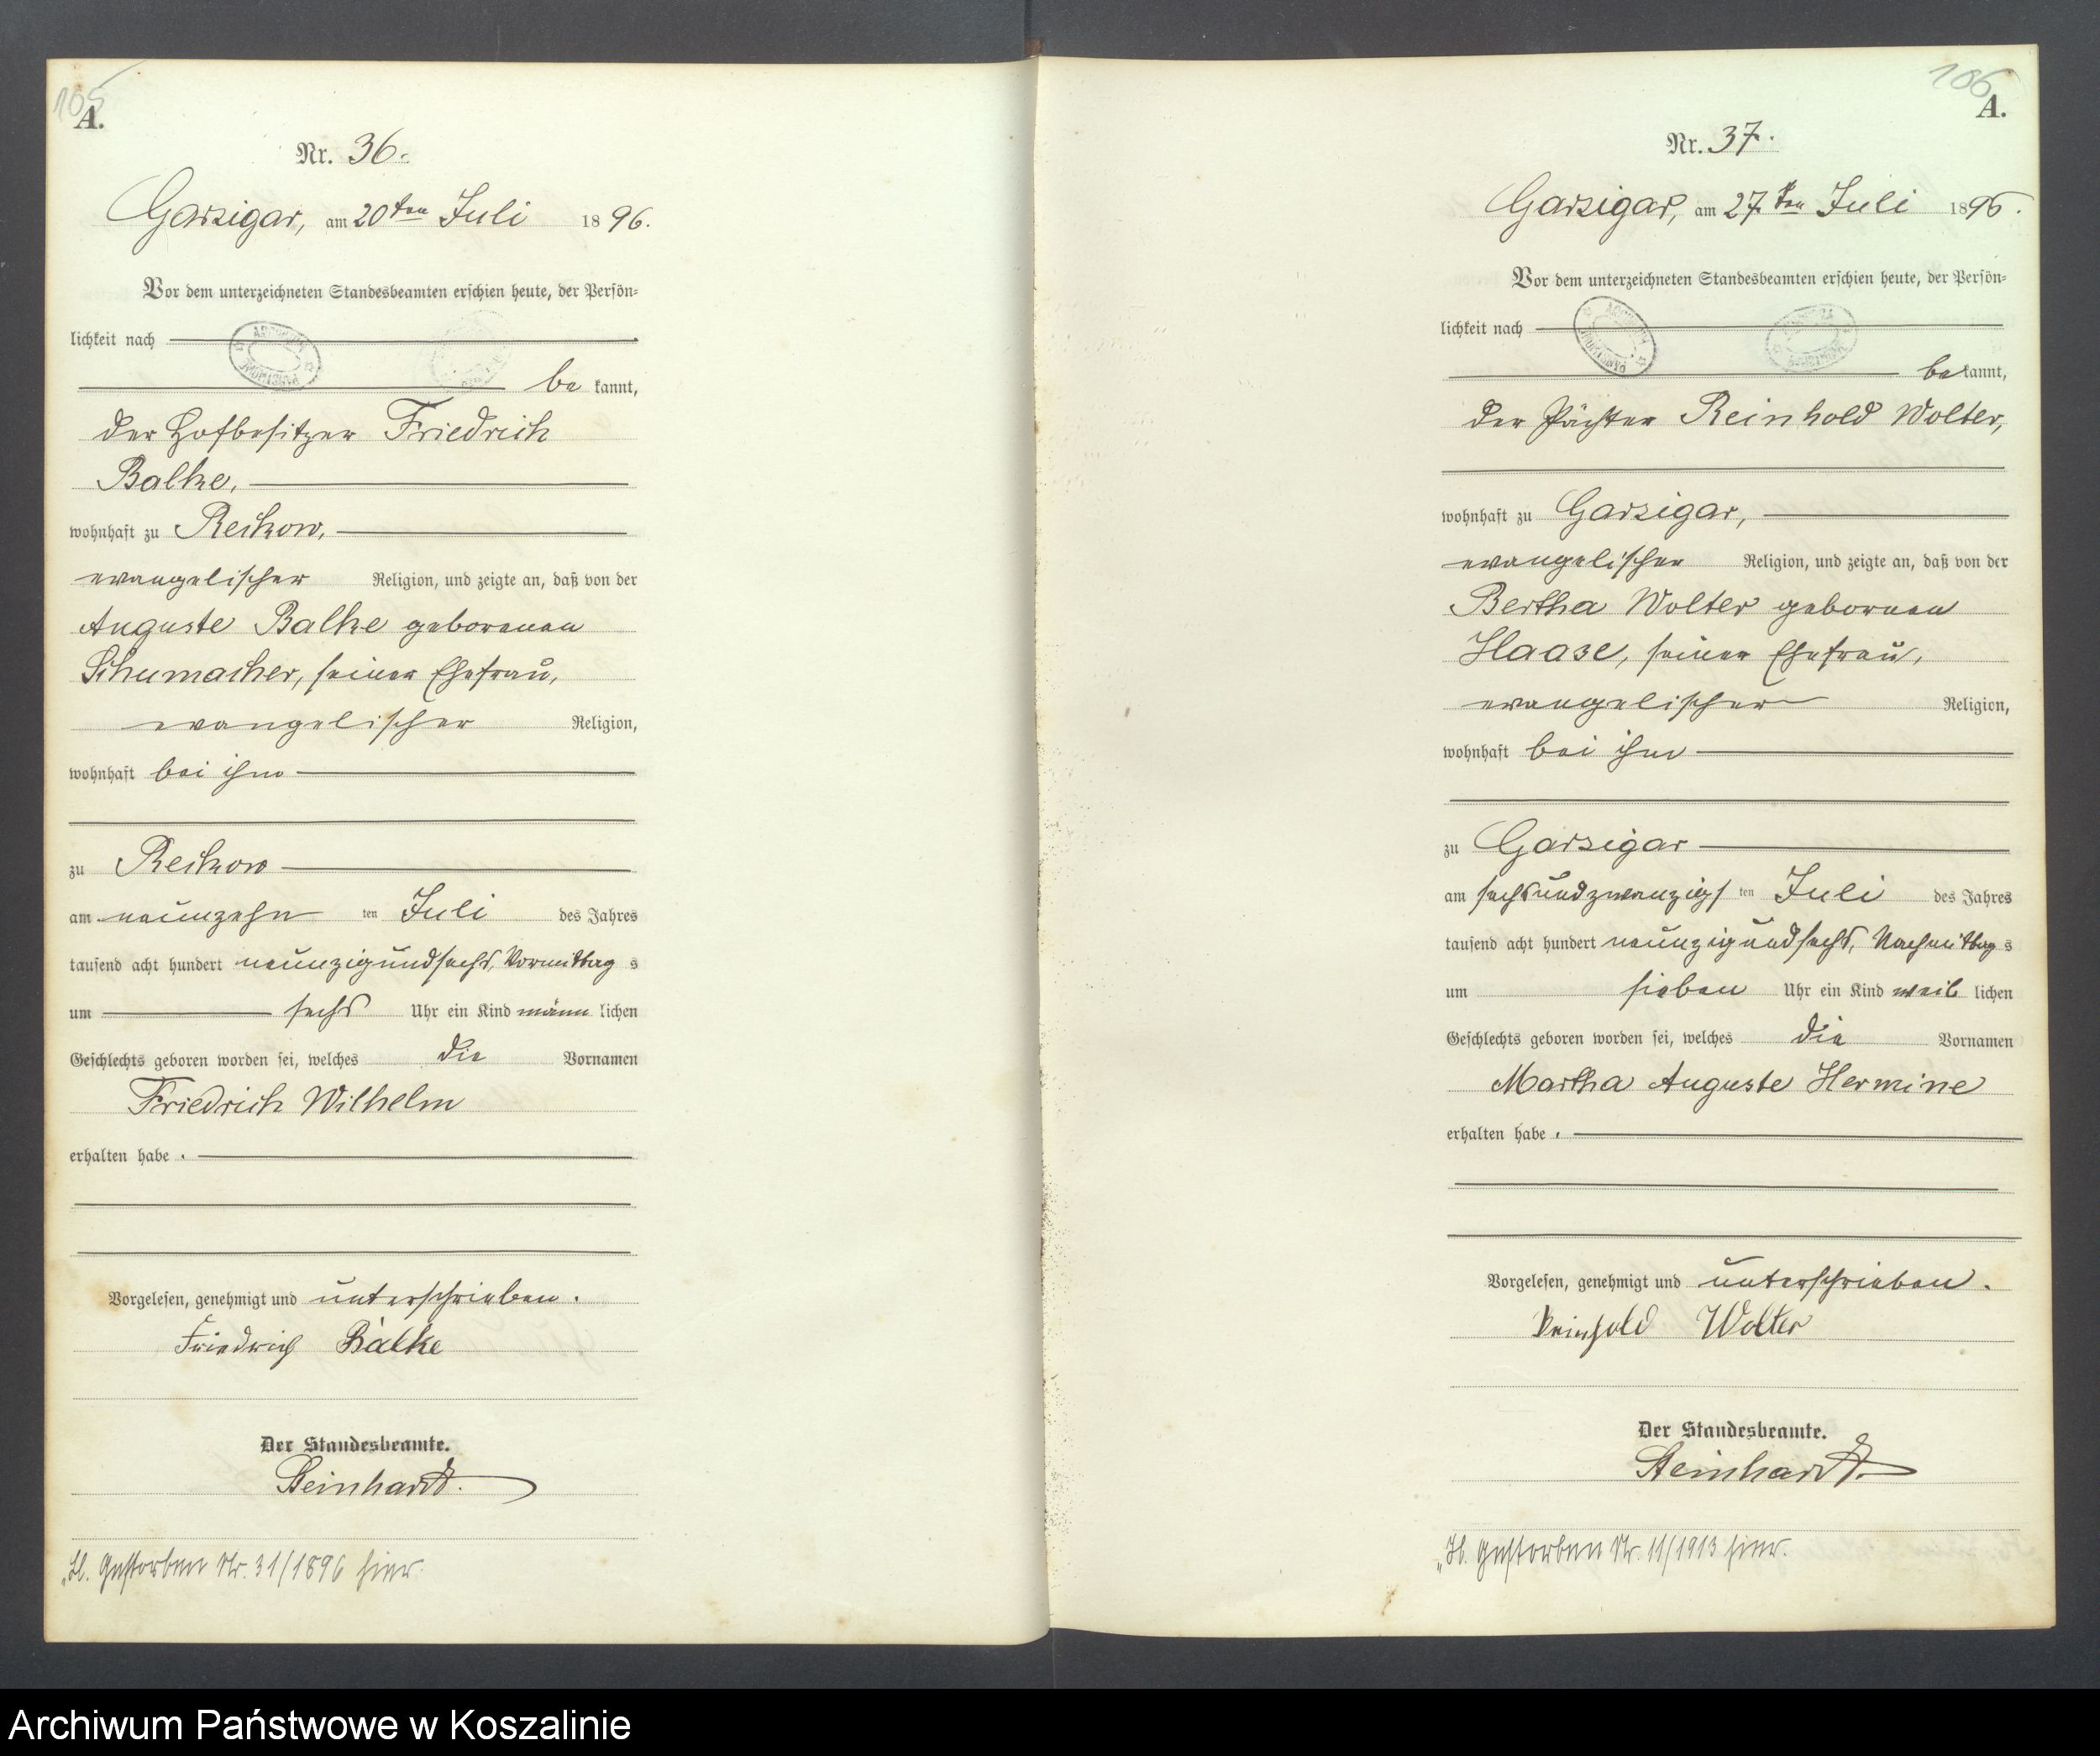 105
A.
Nr. 36.
Garzigar, am 20ten Juli 1896.
Vor dem unterzeichneten Standesbeamten erschien heute, der Persön-
lichkeit nach
be kannt,
der Hofbesitzer Friedrich
Balke,
wohnhaft zu Reckow,
evangelischer Religion, und zeigte an, daß von der
Auguste Balke geborenen
Schumacher, seiner Ehefrau,
evangelischer Religion,
wohnhaft bei ihm
zu Reckow
am neunzehn ten Juli des Jahres
tausend acht hundert neunzigundsechs, Vormittag s
um sechs Uhr ein Kind männ lichen
Geschlechts geboren worden sei, welches die Vornamen
Friedrich Wilhelm
erhalten habe.
Vorgelesen, genehmigt und unterschrieben.
Friedrich Balke
Der Standesbeamte.
Steinhardt.
Gestorben Nr. 31/1896 hier.
106
A.
Nr. 37.
Garzigar, am 27ten Juli 1896.
Vor dem unterzeichneten Standesbeamten erschien heute, der Persön-
lichkeit nach
be kannt,
der Pächter Reinhold Wolter,
wohnhaft zu Garzigar,
evangelischer Religion, und zeigte an, daß von der
Bertha Wolter gebornen
Haase, seiner Ehefrau,
evangelischer Religion,
wohnhaft bei ihm
zu Garzigar
am sechsundzwanzigs ten Juli des Jahres
tausend acht hundert neunzigundsechs, Nachmittag s
um sieben Uhr ein Kind weib lichen
Geschlechts geboren worden sei, welches die Vornamen
Martha Auguste Hermine
erhalten habe.
Vorgelesen, genehmigt und unterschrieben.
Reinhold Wolter
Der Standesbeamte.
Steinhardt.
Gestorben Nr. 11/1913 hier.
Archiwum Państwowe w Koszalinie